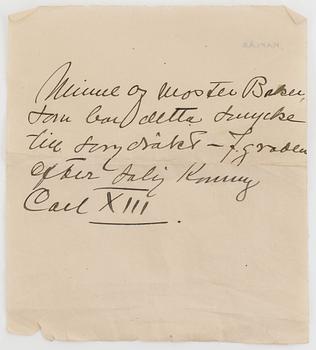 Minne af Moster Baker,
som bar detta smycke
till sorgdräkt – 7. graden
efter salig Konung
Carl XIII.